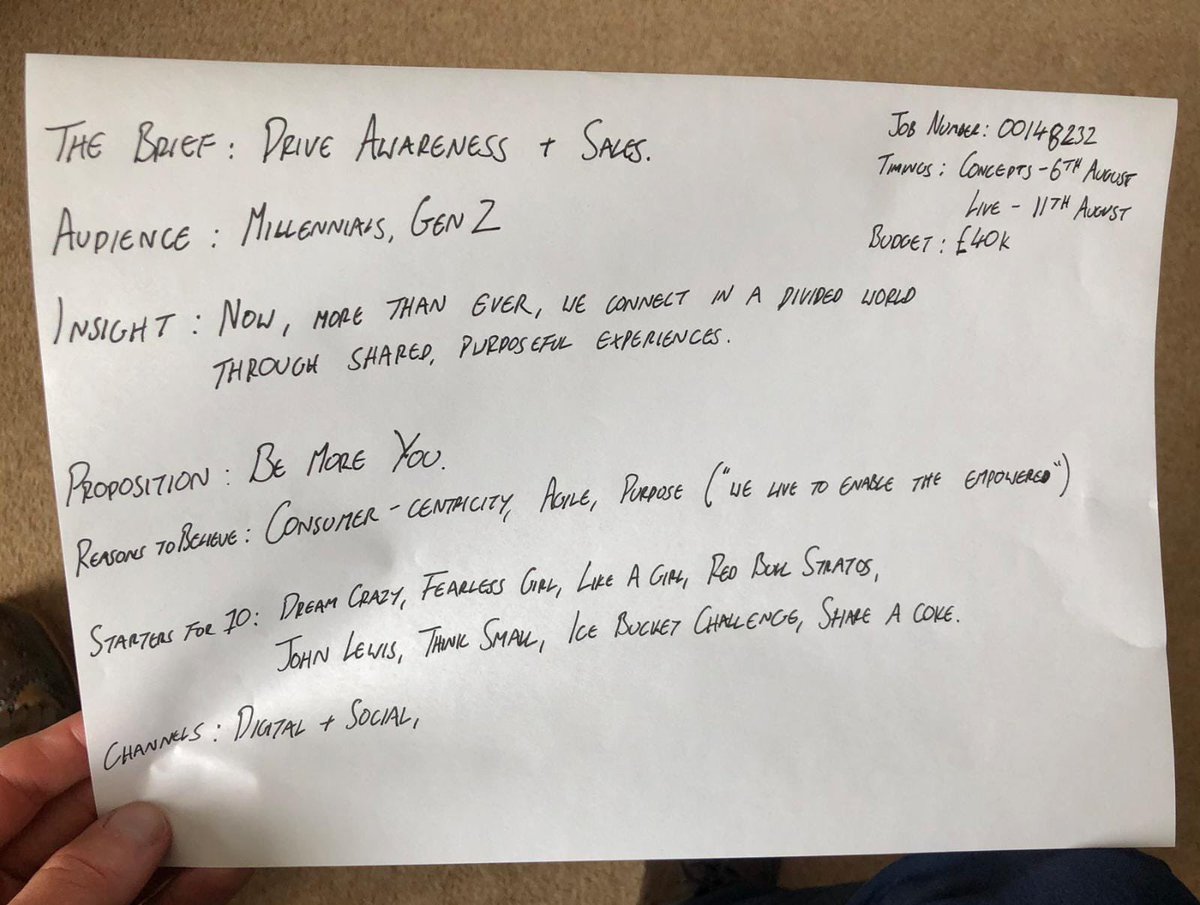 THE BRIEF: DRIVE AWARENESS + SALES.
JOB NUMBER: 00148232
TIMINGS: CONCEPTS - 6TH AUGUST
LIVE - 11TH AUGUST
BUDGET: £40K
AUDIENCE: MILLENNIALS, GEN Z
INSIGHT: NOW, MORE THAN EVER, WE CONNECT IN A DIVIDED WORLD
THROUGH SHARED, PURPOSEFUL EXPERIENCES.
PROPOSITION: BE MORE YOU.
REASONS TO BELIEVE: CONSUMER-CENTRICITY, AGILE, PURPOSE ("WE LIVE TO ENABLE THE EMPOWERED")
STARTERS FOR 10: DREAM CRAZY, FEARLESS GIRL, LIKE A GIRL, RED BULL STRATOS,
JOHN LEWIS, THINK SMALL, ICE BUCKET CHALLENGE, SHARE A COKE.
CHANNELS: DIGITAL + SOCIAL,